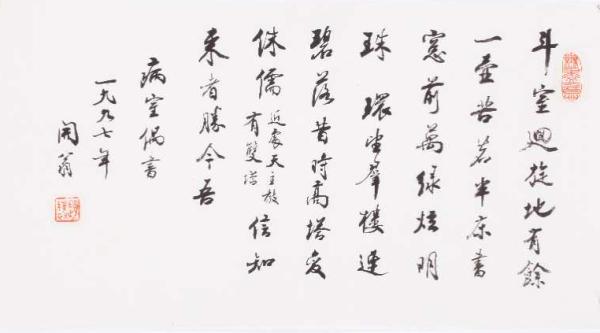 斗室迴旋地有餘
一壺苦茗半床書
窓前萬綠炫明
珠環望羣樓連
碧落昔時高塔變
侏儒近處天主教有雙塔信知
來者勝今吾
病室偶書
一九九七年
開翁